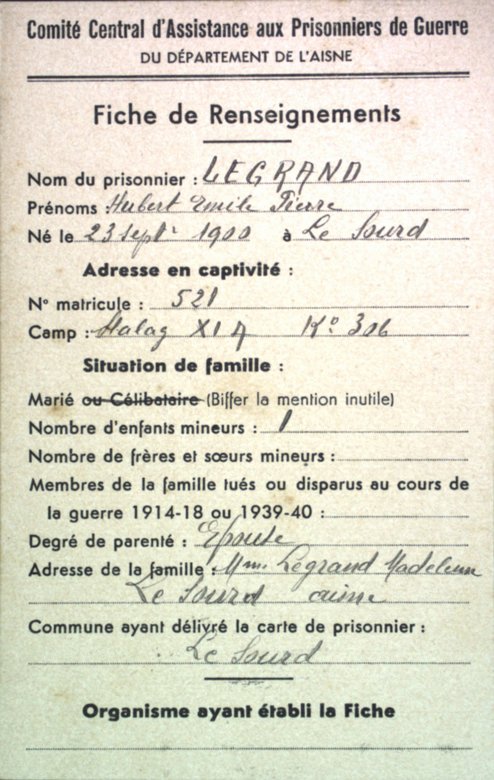 Comité Central d'Assistance aux Prisonniers de Guerre
DU DÉPARTEMENT DE L'AISNE
Fiche de Renseignements
Nom du prisonnier : LEGRAND
Prénoms : Hubert Emile Pierre
Né le 23 septr 1900 à Le Sourd
Adresse en captivité :
N° matricule : 521
Camp : Stalag XI A Ko 306
Situation de famille :
Marié ou Célibataire (Biffer la mention inutile)
Nombre d'enfants mineurs : 1
Nombre de frères et sœurs mineurs :
Membres de la famille tués ou disparus au cours de
la guerre 1914-18 ou 1939-40 :
Degré de parenté : Epouse
Adresse de la famille : Mme Legrand Madeleine
Le Sourd aisne
Commune ayant délivré la carte de prisonnier :
Le Sourd
Organisme ayant établi la Fiche